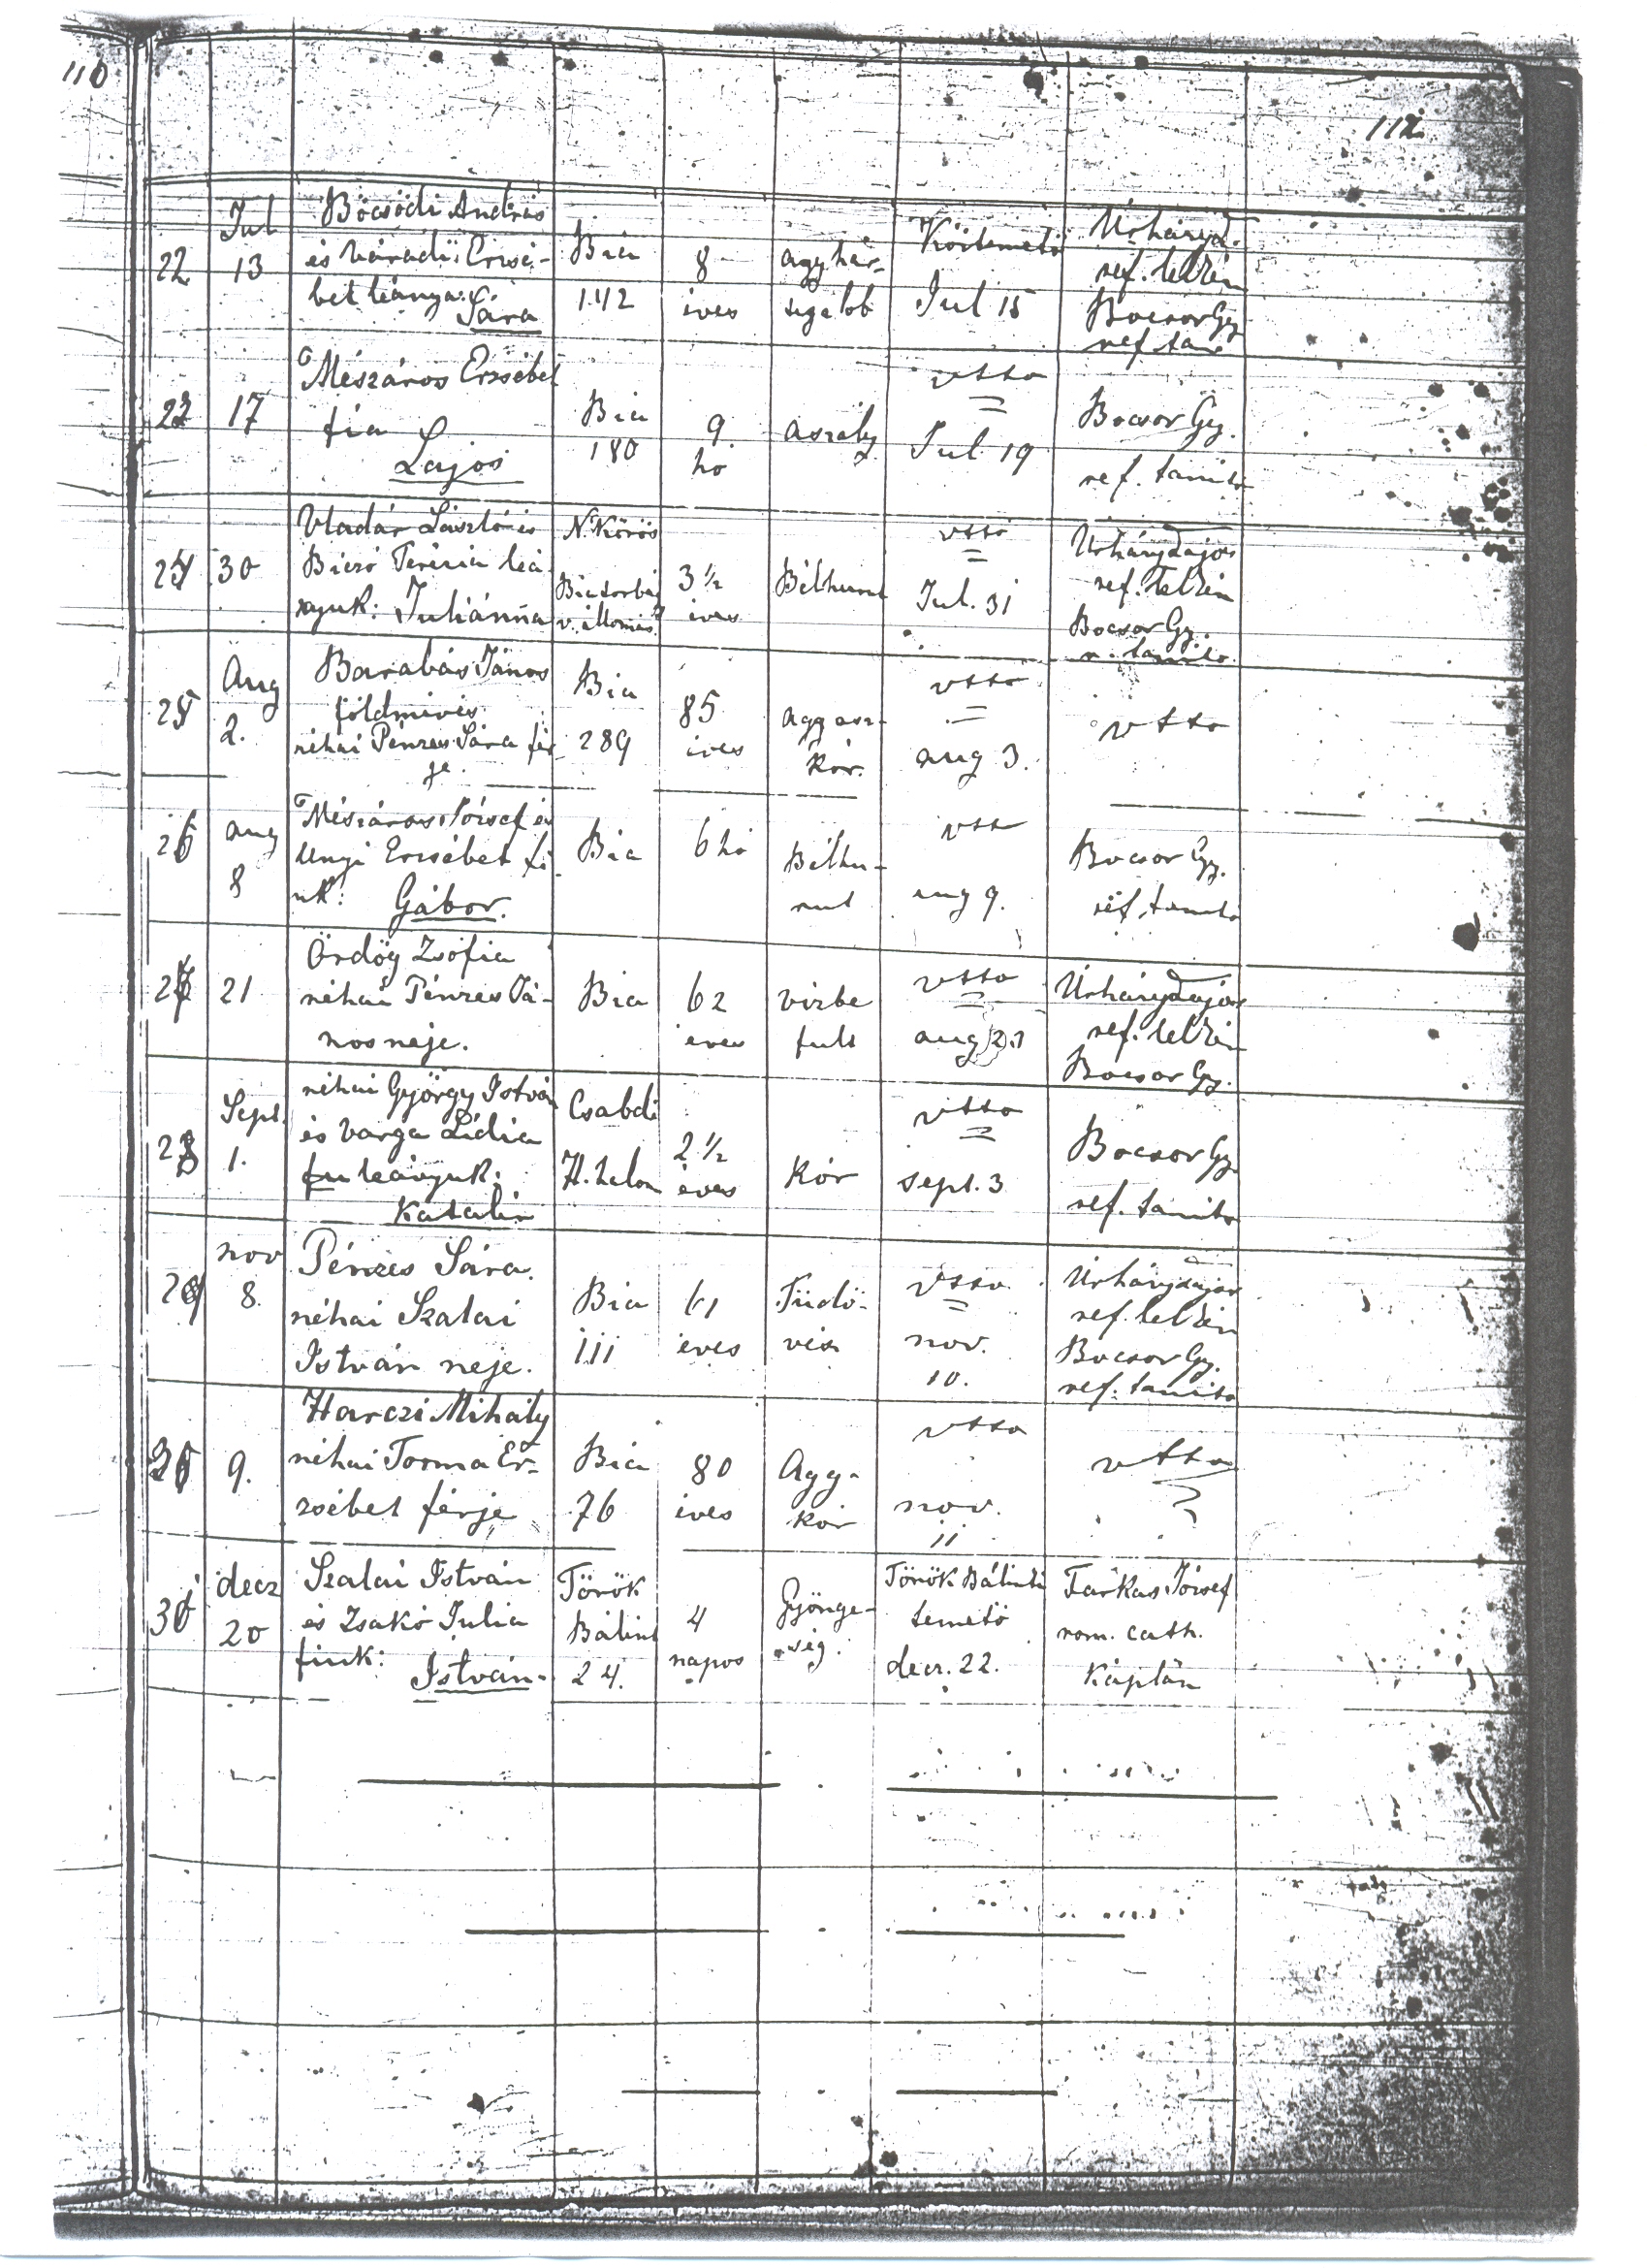 110
112
22
Jul
13
Böcsödi András
és Váradi Erzsé-
bet leánya: Sára
Bia
142
8
éves
agyhár-
tyalob
Köztemető
Jul 15
Úrháryd.
ref. lelkén
Bocsor Gy
ref. tan
23
17
Mészáros Erzsébet
fia
Lajos
Bia
180
9.
hó
aszály
vtto
Jul 19
Bocsor Gy.
ref. tanító
24
30
Vladár László és
Bicsó Terézia leá-
nyuk: Juliánna
N. Körös
Biatorbág
v. állomás
3 1/2
éves
Bélhurut
vtto
Jul. 31
ref. lelkén
Bocsor Gy.
r. tanító
25
Aug
2.
Barabás János
földmivés
néhai Pénzes Sára fér
je.
Bia
289
85
éves
aggasz-
kór.
vtto
aug 3.
vtto
26
aug
8
Mészáros József és
Unyi Erzsébet fi-
uk: Gábor.
Bia
6 hó
Bélhu-
rut
vtto
aug 9.
Bocsor Gy.
ref. tanító
27
21
Ördög Zsófia
néhai Pénzes Já-
nos neje.
Bia
62
éves
vízbe
fult
vtto
aug 23
ref. lelkén
Bocsor Gy.
28
Sept.
1.
néhai György István
és Varga Lídia
fu leányuk:
Katalin
Csabdi
H. halom
2 1/2
éves
Kór
vtto
sept. 3
Bocsor Gy
ref. tanító
29
nov
8.
Pénzes Sára
néhai Szalai
István neje.
Bia
111
61
éves
Tüdő-
vész
vtto
nov.
10.
ref. lelkén
Bocsor Gy.
ref. tanító
30
9.
Harczi Mihály
néhai Torma Er-
zsébet férje
Bia
76
80
éves
Agg-
kór
vtto
nov.
11
vtto
31
decz
20
Szalai István
és Zsakó Julia
fiuk:
István
Török
Bálint
24.
4
napos
Gyönge-
ség.
Török Bálinti
temető
decz. 22.
Farkas József
rom. cath.
Káplán